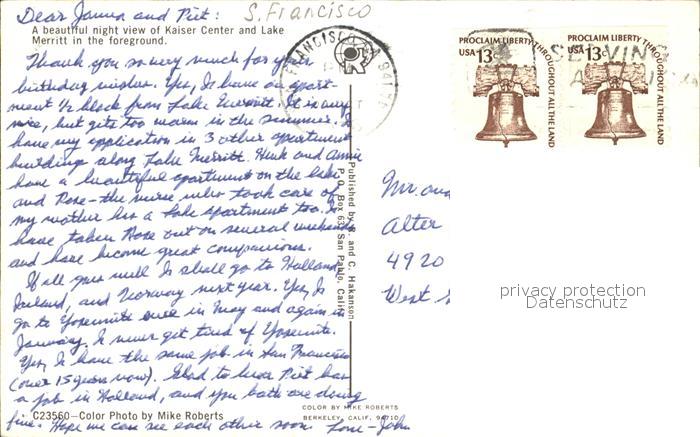 Dear Janna and Piet:
S. Francisco
A beautiful night view of Kaiser Center and Lake
Merritt in the foreground.
Thank you so very much for your
birthday wishes. Yes, I have an apart-
ment ½ block from Lake Merritt. It is very
nice, but gets too warm in the summer. I
have my application in 3 other apartment
buildings along Lake Merritt. Henk and Annie
have a beautiful apartment on the lake
and Rose - the nurse who took care of
my mother has a lake apartment too. I
have taken Rose out on several weekends
and have become great companions.
If all goes well I shall go to Holland
Ireland, and Norway next year. Yes, I
go to Yosemite once in May and again in
January. I never get tired of Yosemite.
Yes, I have the same job in San Francisco
(over 15 years now). Glad to hear Piet has
a job in Holland, and you both are doing
fine. Hope we can see each other soon. Love - John
C23560—Color Photo by Mike Roberts
Published by and C. Hakanson
P.O. Box 63 San Pablo, Calif
COLOR BY MIKE ROBERTS
BERKELEY, CALIF. 94710
FRANCISCO 941
PROCLAIM LIBERTY THROUGHOUT ALL THE LAND
USA 13c
PROCLAIM LIBERTY THROUGHOUT ALL THE LAND
USA 13c
Mr. and
Alter
4920
West
privacy protection
Datenschutz